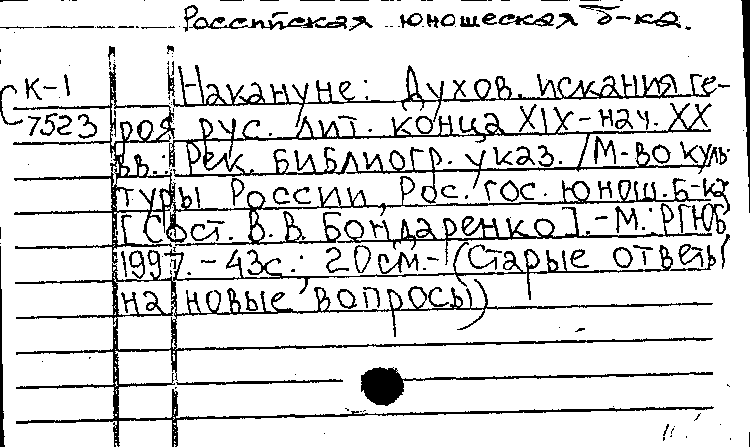 Российская юношеская б-ка.
С К-1 Накануне: Духов. искания ге-
7523 роя рус. лит. конца XIX-нач. XX
вв.: Рек. библиогр. указ. /М-во куль
туры России, Рос. гос. юнош. б-ка;
[Сост. В. В. Бондаренко].-М.: РГЮБ,
1997. - 43с.; 20см.- (Старые ответы
на новые вопросы)